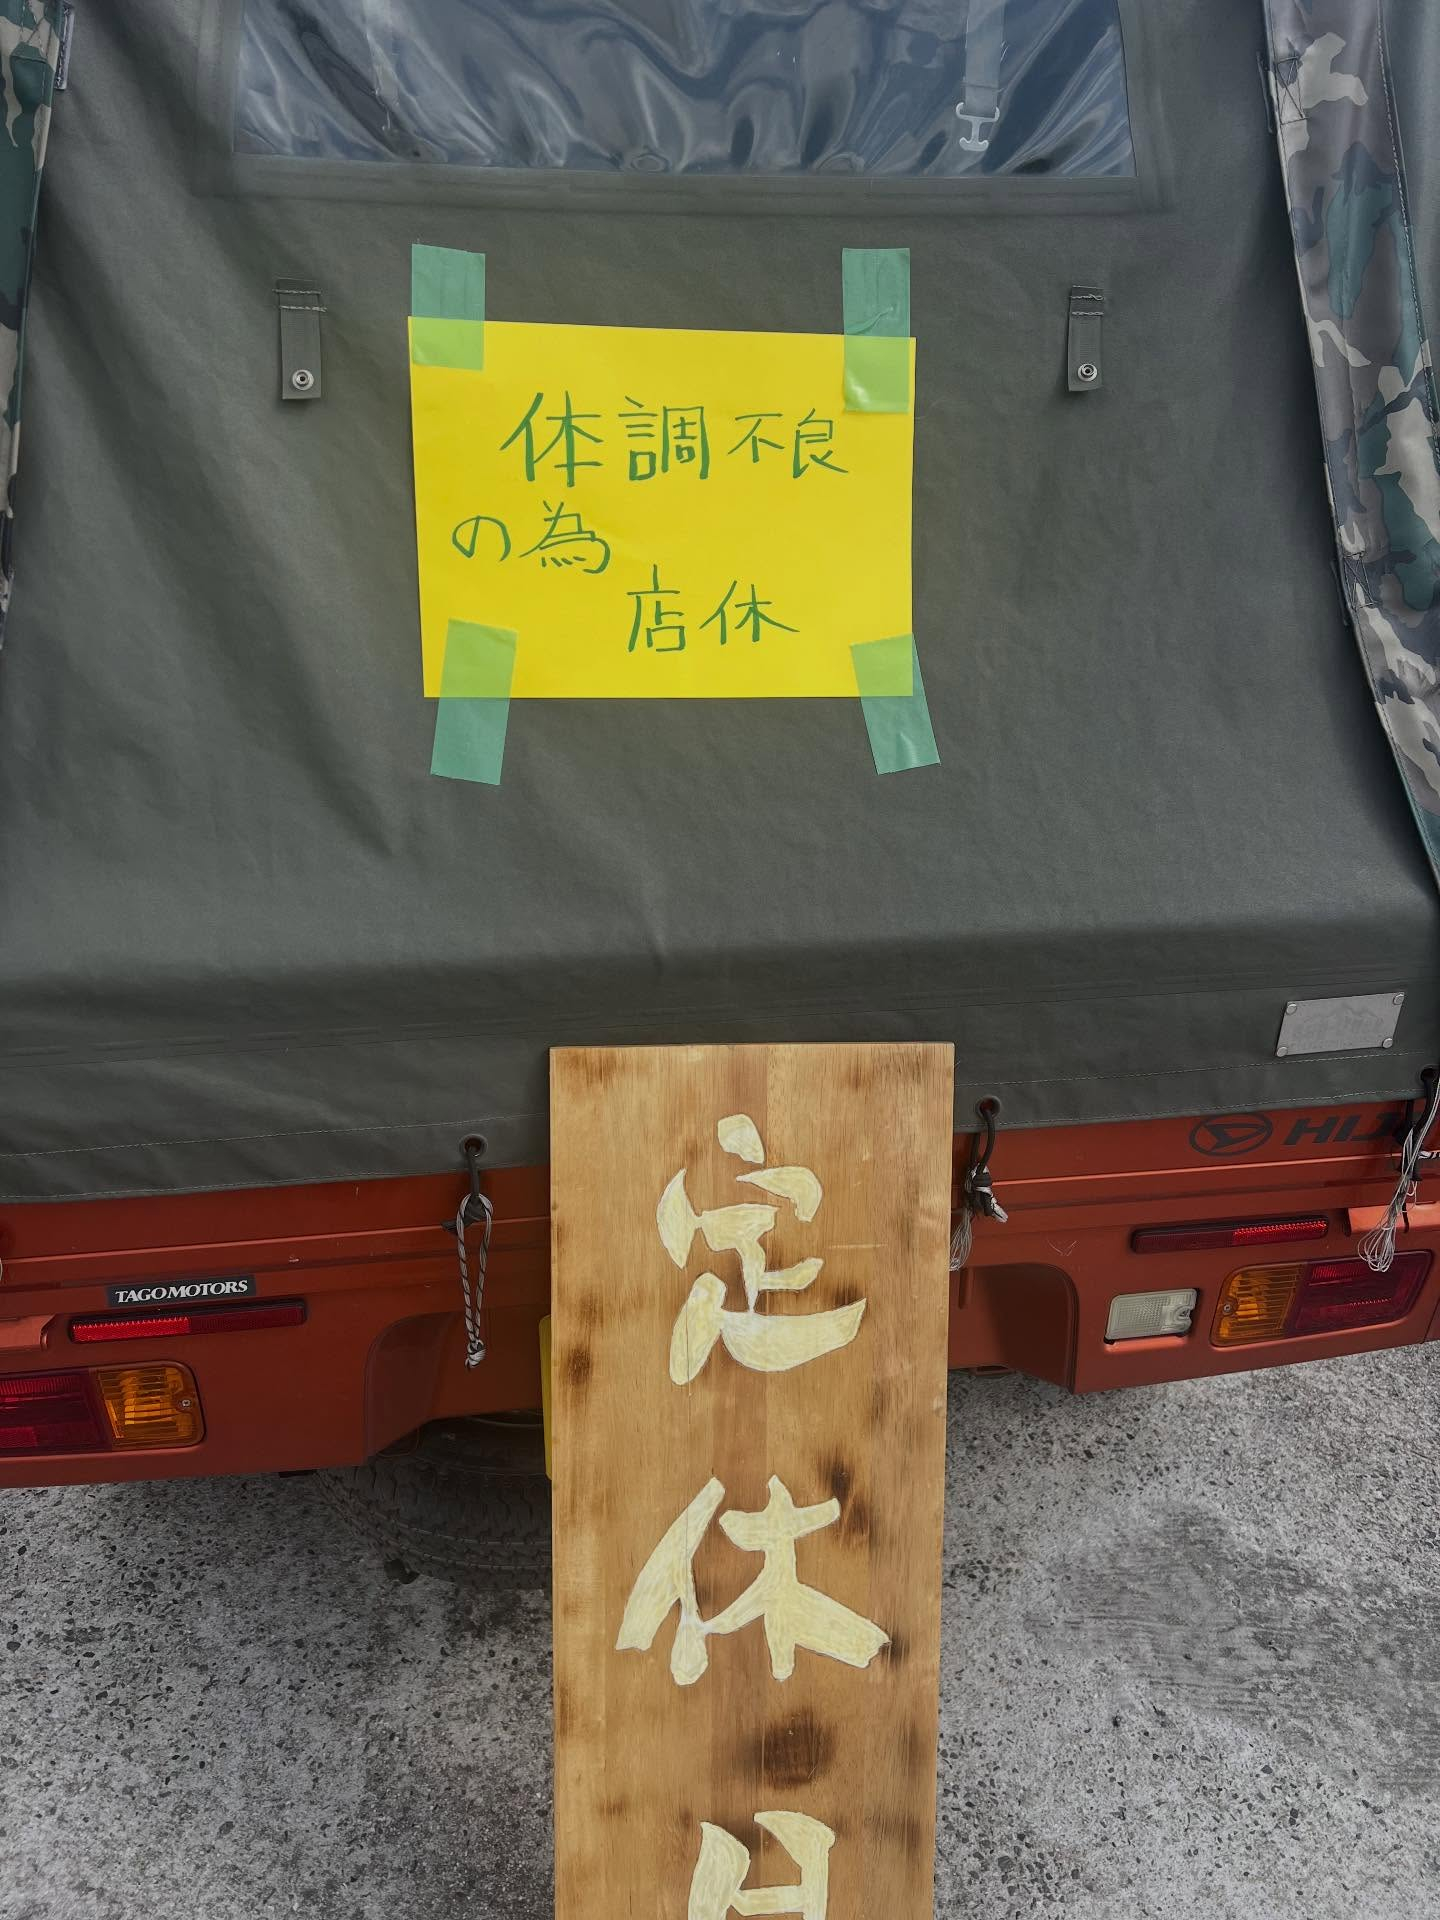 体調不良
の為
店休
HIJ
TAGO MOTORS
定休日